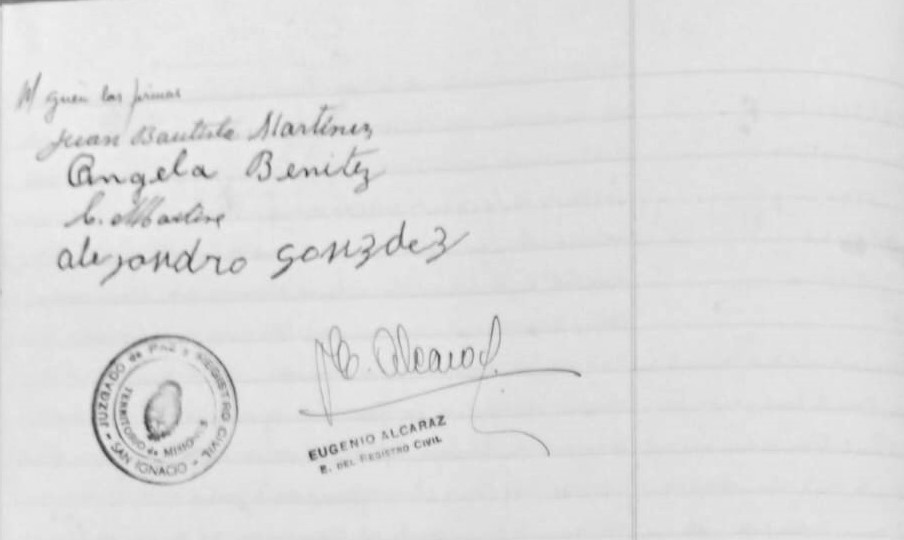 Siguen las firmas
Juan Bautista Martinez
Angela Benitez
C. Martine
alejandro gonzdez
E. Alcaraz
JUZGADO de PAZ y REGISTRO CIVIL
TERRITORIO de MISIONES
- SAN IGNACIO -
EUGENIO ALCARAZ
E. DEL REGISTRO CIVIL